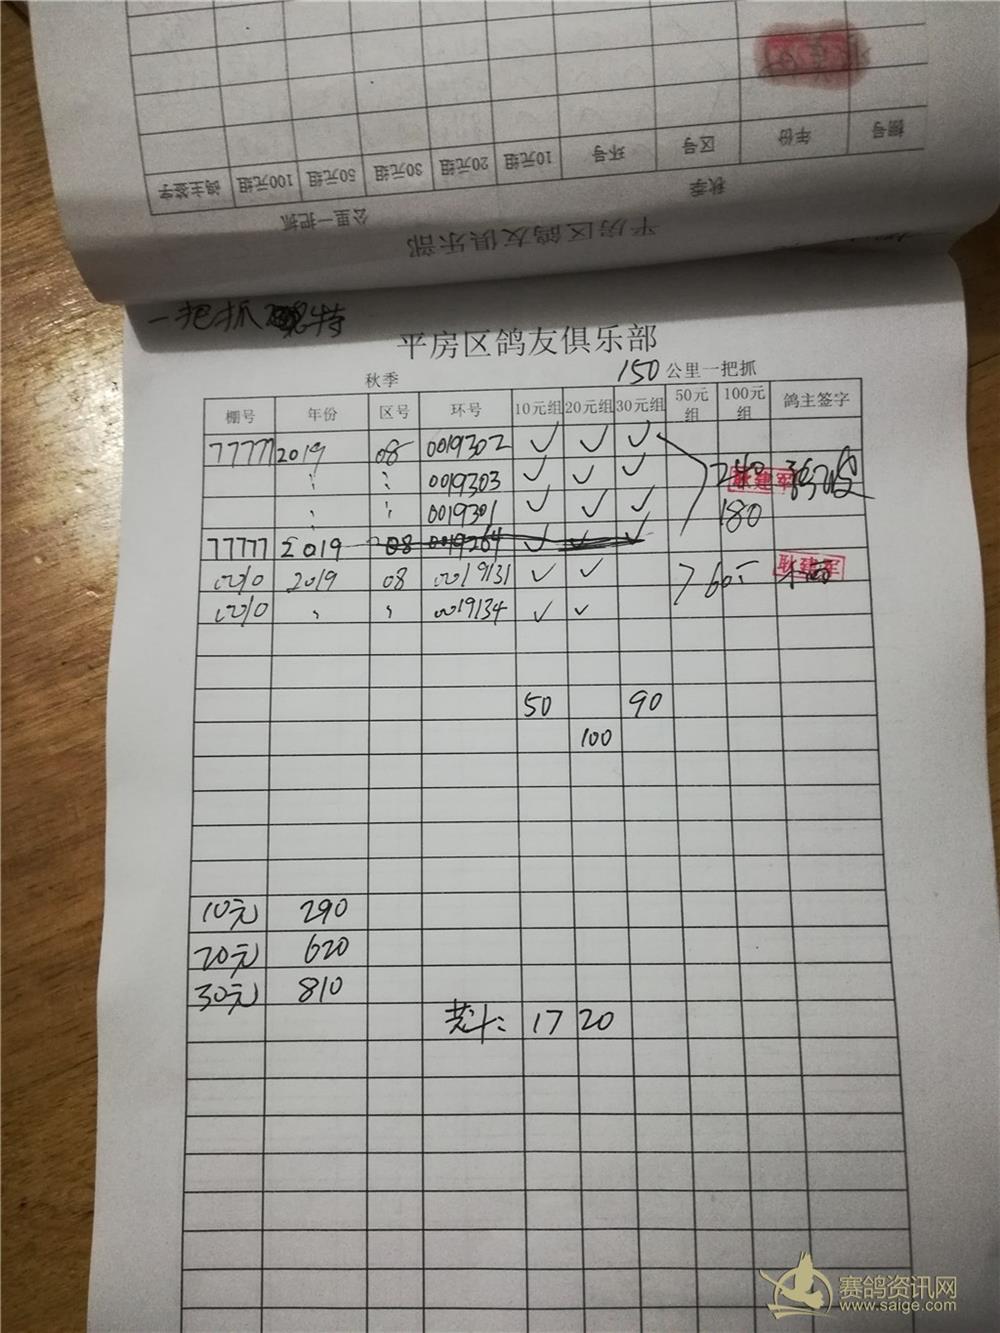 棚号 年份 区号 环号 10元组 20元组 30元组 50元组 100元组 鸽主签字
秋季 公里一把抓
平房区鸽友俱乐部
一把抓
平房区鸽友俱乐部
秋季 150公里一把抓
棚号 年份 区号 环号 10元组 20元组 30元组 50元组 100元组 鸽主签字
77777 2019 08 0019302 ✓ ✓ ✓
〃 〃 0019303 ✓ ✓ ✓ 耿建军
〃 〃 0019301 ✓ ✓ ✓ 180
77777 2019 08 0019264 ✓ ✓ ✓
0010 2019 08 0019131 ✓ ✓ 60 耿建军
0010 〃 〃 0019134 ✓ ✓
50 90
100
10元 290
20元 620
30元 810
共计: 1720
赛鸽资讯网
www.saige.com